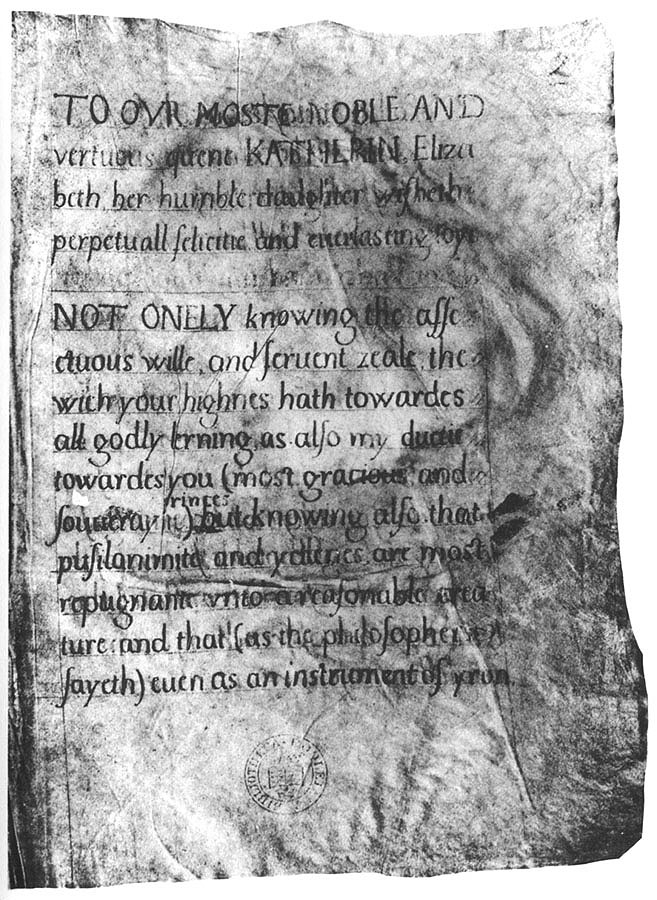 2
TO OVR MOSTE NOBLE AND
vertuous quene KATHERIN, Eliza
beth her humble daughter wiſheth
perpetuall felicitie and everlaſting ioye
NOT ONELY knowing the affe
ctuous wille, and feruent zeale, the
wich your highnes hath towardes
all godly lerning, as alſo my duetie
towardes you (moſt gracious and
rinces
ſouuerayne ) but knowing alſo that
puſilanimite and ydlenes are moſt
repugnante vnto a reaſonable crea
ture: and that (as the philoſopher
ſayeth) euen as an inſtrument of yron